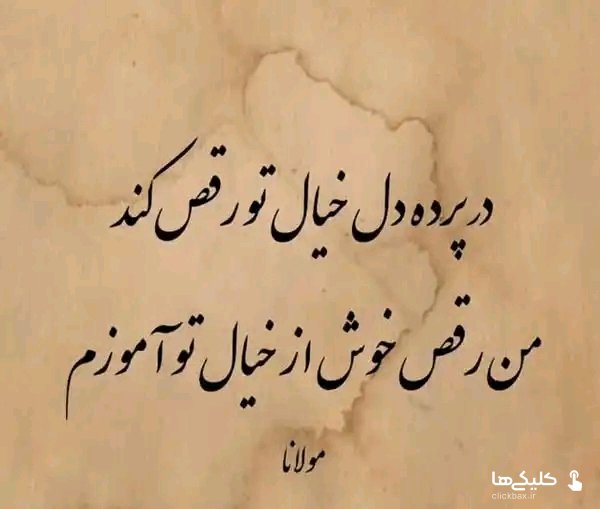 در پرده دل خیال تو رقص کند
من رقص خوش از خیال تو آموزم
مولانا
کلیکی‌ها
clickbax.ir